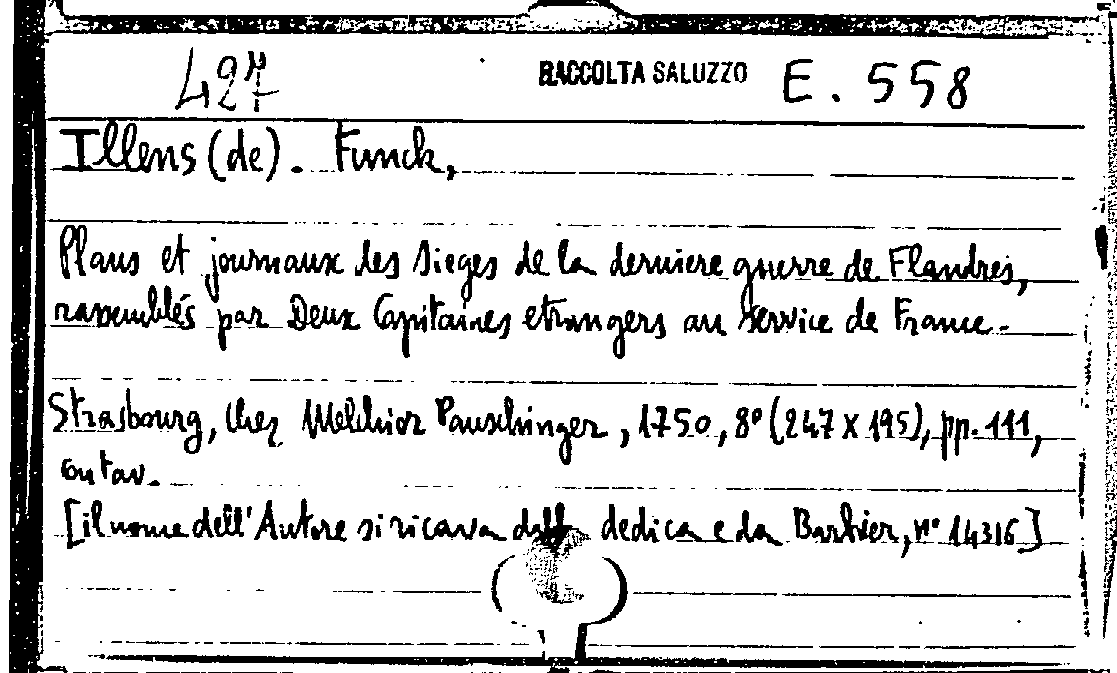 427 RACCOLTA SALUZZO E. 558
Illens (de). Funck,
Plans et journaux des Sieges de la derniere guerre de Flandres,
rassemblés par Deux Capitaines etrangers au service de France.
Strasbourg, chez Melchior Pauschinger, 1750, 8° (247 x 195), pp. 111,
con tav.
[il nome dell'Autore si ricava dalla dedica e da Barbier, n° 14316]